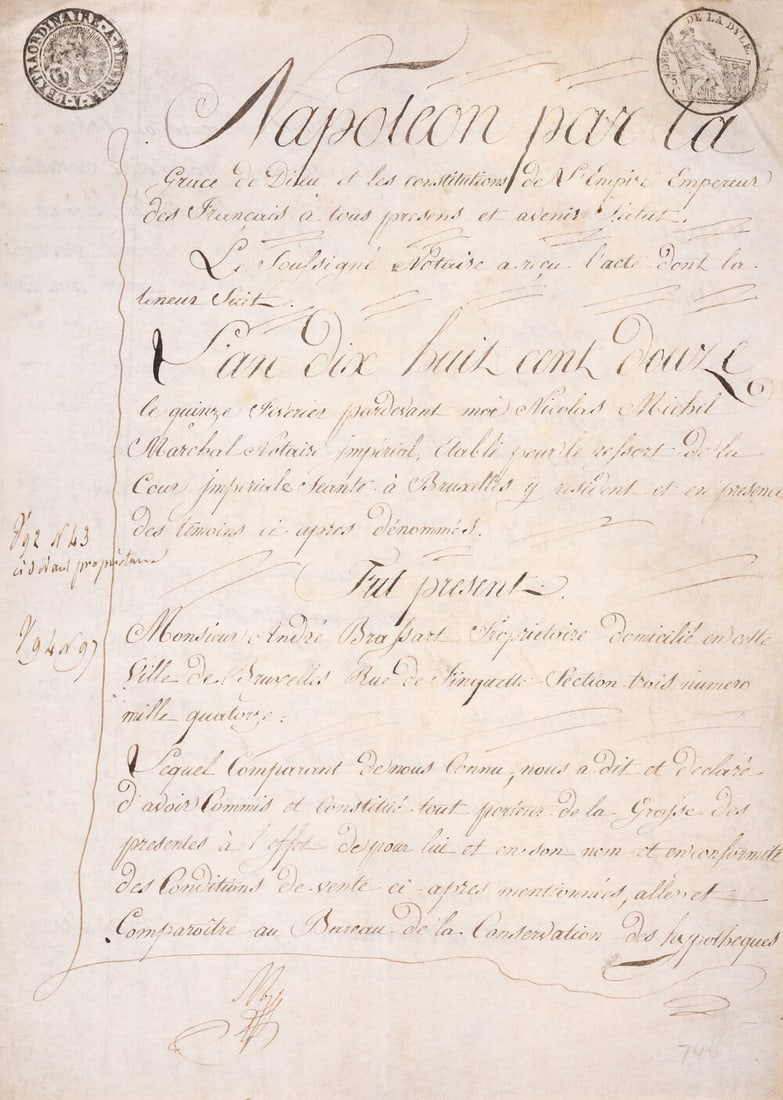 A L'EXTRAORDINAIRE - A TIMBRER
DEP. DE LA DYLE.
Napoleon par la
Grace de Dieu et les constitutions de L'Empire Empereur
des Français à tous presens et avenir Salut.
Le Soussigné Notaire a reçu l'acte dont la
teneur Suit.
L'an dix huit cent douze
le quinze Fevrier pardevant moi Nicolas Michel
Marchal Notaire impérial, établi pour le ressort de la
Cour impériale Seante à Bruxelles ÿ resident et en presence
des témoins ci apres dénommés.
Vº 92 Nº 43
ci devant propriétaire
Fut present.
Vº 94 Nº 97
Monsieur André Brassart Proprietaire domicilié en cette
Ville de Bruxelles Rue de Section trois numero
mille quatorze:
Lequel Comparant de nous Connu, nous a dit et declaré
d'avoir Commis et Constitué tout porteur de la Grosse des
presentes à l'effet de pour lui et en son nom et en conformité
des Conditions de vente ci-apres mentionnées, aller et
Comparoître au Bureau de la Conservation des hypotheques
746